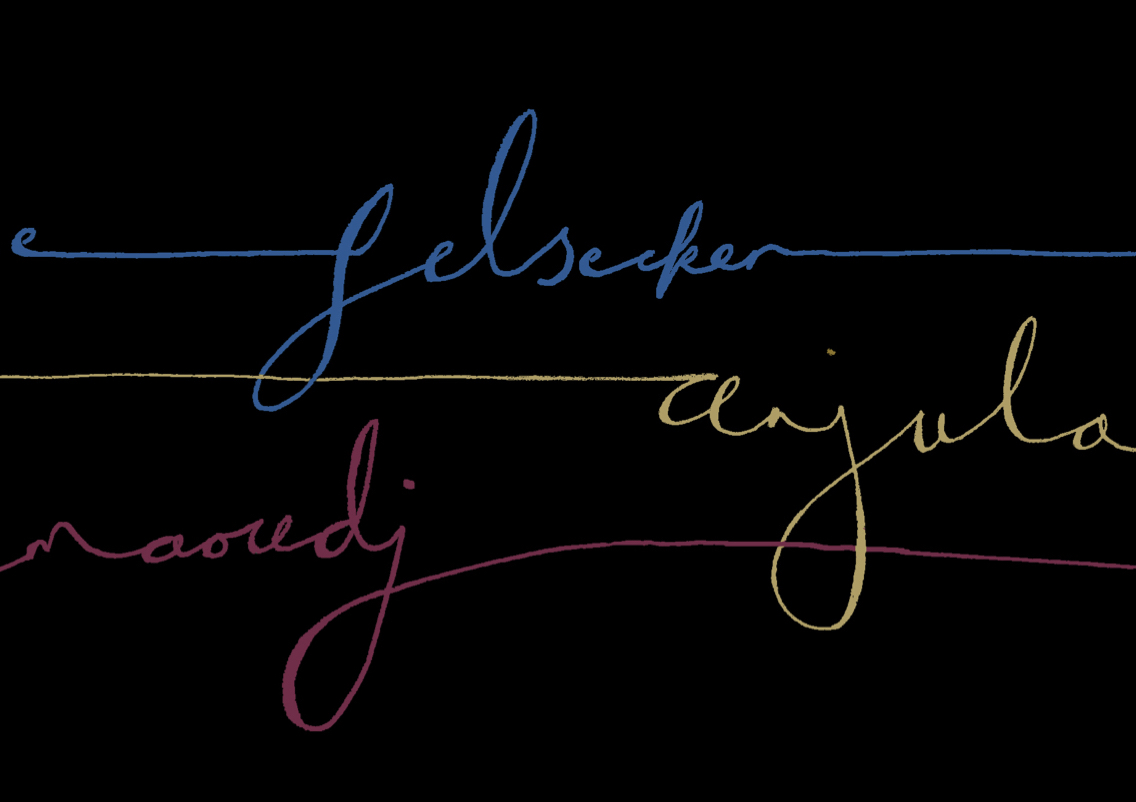 e felsecker
anjula
naouedj